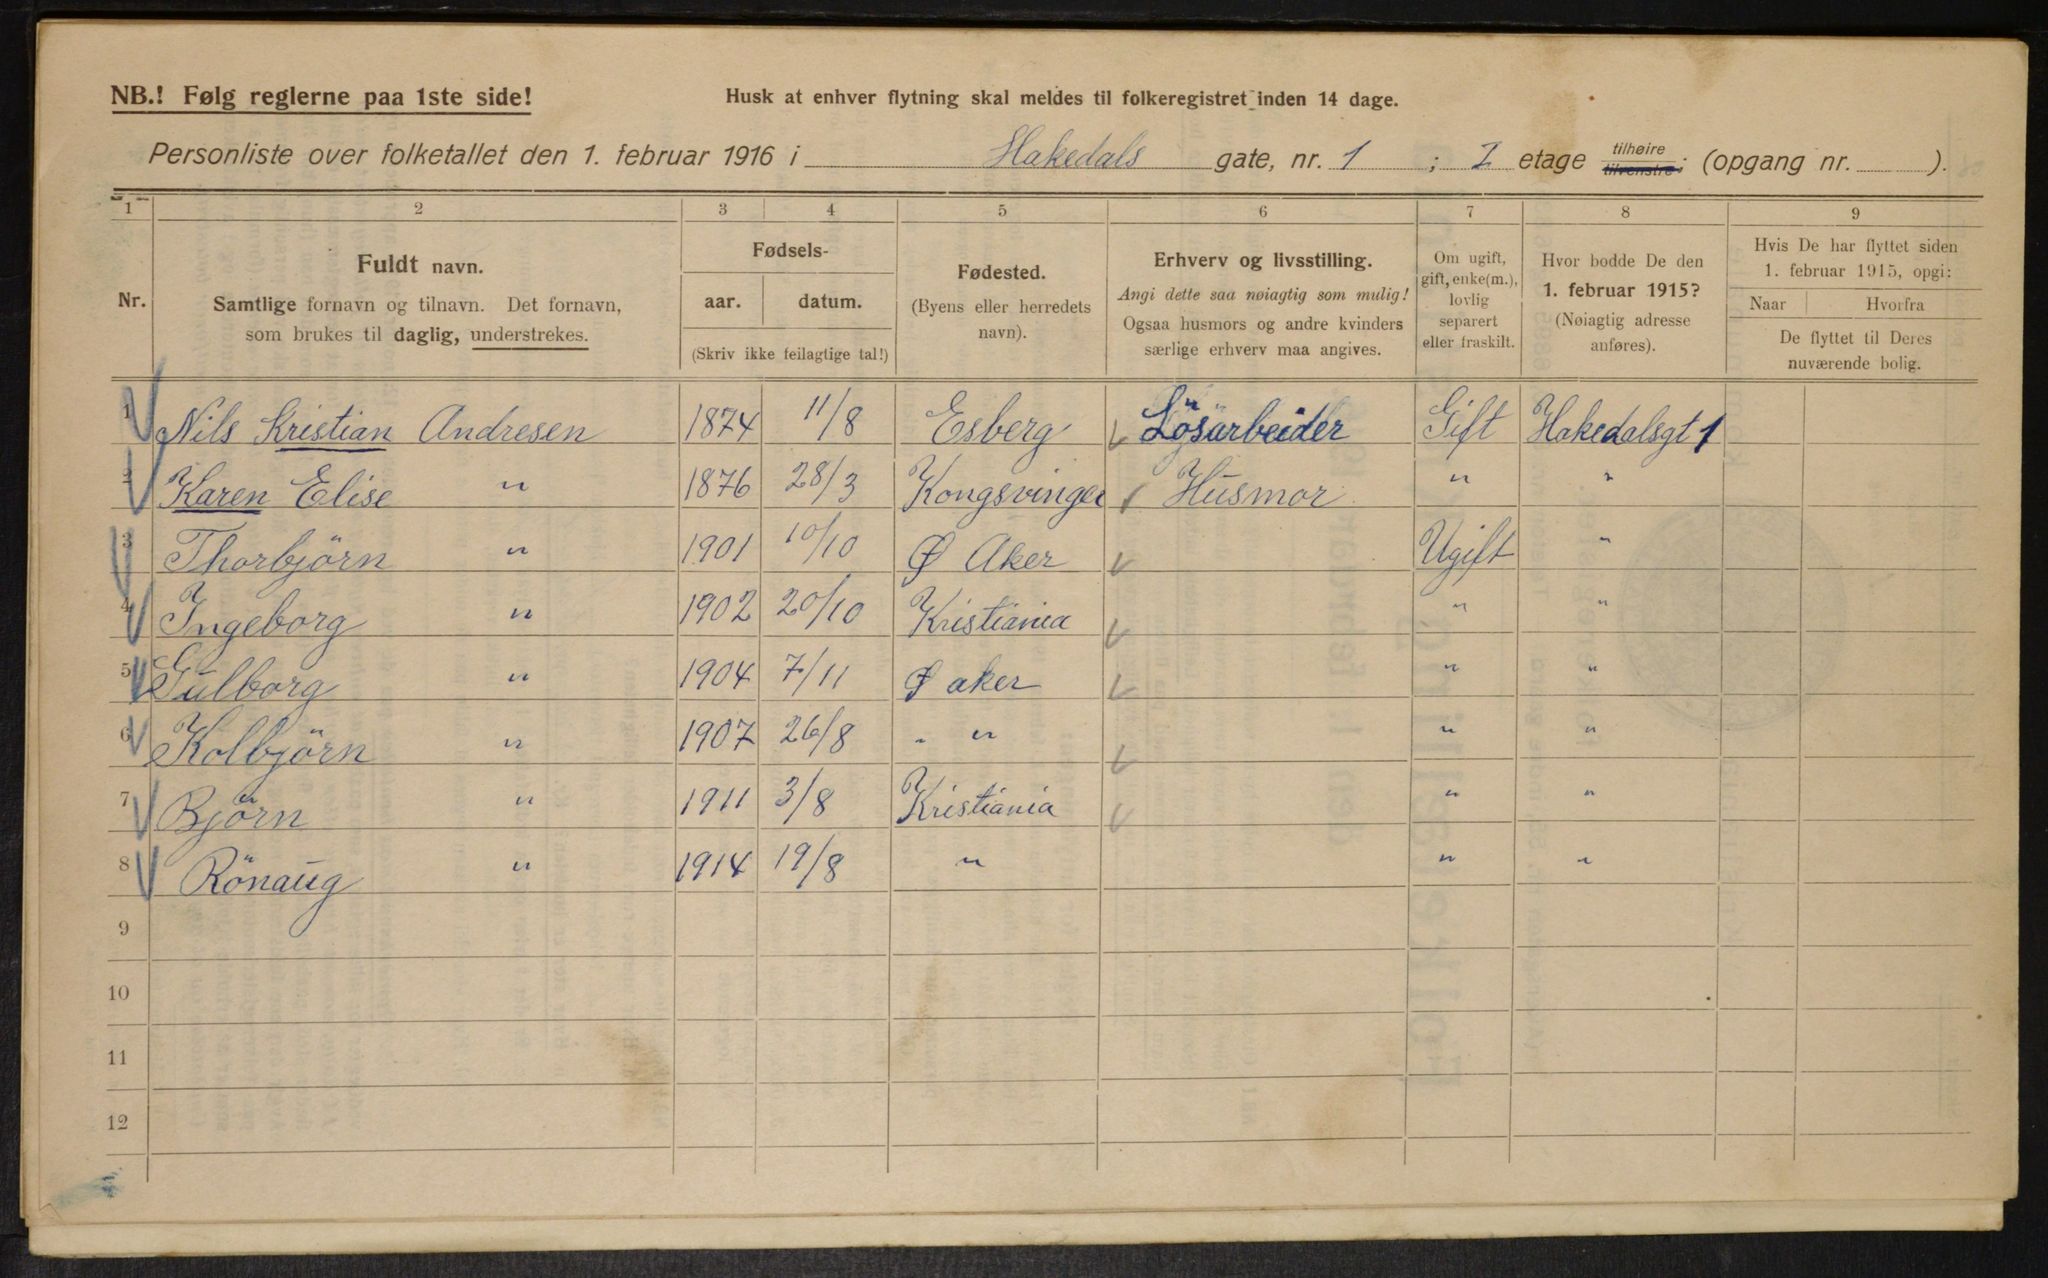 NB.! Følg reglerne paa 1ste side!
Husk at enhver flytning skal meldes til folkeregistret inden 14 dage.
Personliste over folketallet den 1. februar 1916 i Hakedals gate, nr. 1 ; I etage tilhøire tilvenstre; (opgang nr. ).
1 2 3 4 5 6 7 8 9
Nr.
Fuldt navn.
Samtlige fornavn og tilnavn. Det fornavn,
som brukes til daglig, understrekes.
Fødsels-
aar. datum.
(Skriv ikke feilagtige tal!)
Fødested.
(Byens eller herredets
navn).
Erhverv og livsstilling.
Angi dette saa nøiagtig som mulig!
Ogsaa husmors og andre kvinders
særlige erhverv maa angives.
Om ugift,
gift, enke(m.),
lovlig
separert
eller fraskilt.
Hvor bodde De den
1. februar 1915?
(Nøiagtig adresse
anføres).
Hvis De har flyttet siden
1. februar 1915, opgi:
Naar Hvorfra
De flyttet til Deres
nuværende bolig.
1 Nils Kristian Andresen 1874 11/8 Esberg Lösarbeider Gift Hakedalsgt 1
2 Karen Elise " 1876 28/3 Kongsvinger Husmor " "
3 Thorbjörn " 1901 10/10 Ø Aker Ugift "
4 Ingeborg " 1902 20/10 Kristiania " "
5 Gulborg " 1904 7/11 Ø aker " "
6 Kolbjörn " 1907 26/8 " " " "
7 Björn " 1911 3/8 Kristiania " "
8 Rönaug " 1914 19/8 " " "
9
10
11
12